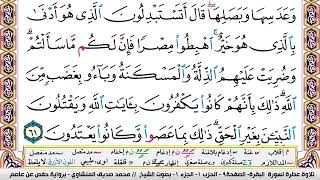 وَعَدَسِهَا وَبَصَلِهَاۖ قَالَ أَتَسْتَبْدِلُونَ ٱلَّذِى هُوَ أَدْنَىٰ
بِٱلَّذِى هُوَ خَيْرٌۚ ٱهْبِطُوا۟ مِصْرًا فَإِنَّ لَكُم مَّا سَأَلْتُمْۗ
وَضُرِبَتْ عَلَيْهِمُ ٱلذِّلَّةُ وَٱلْمَسْكَنَةُ وَبَآءُو بِغَضَبٍ مِّنَ
ٱللَّهِۗ ذَٰلِكَ بِأَنَّهُمْ كَانُوا۟ يَكْفُرُونَ بِـَٔايَـٰتِ ٱللَّهِ وَيَقْتُلُونَ
ٱلنَّبِيِّـۧنَ بِغَيْرِ ٱلْحَقِّۗ ذَٰلِكَ بِمَا عَصَوا۟ وَّكَانُوا۟ يَعْتَدُونَ ٦١
تلاوة عطرة لسورة البقرة - الصفحة ٩ - الحزب ١ - الجزء ١ - بصوت الشيخ // محمد صديق المنشاوي - برواية حفص عن عاصم